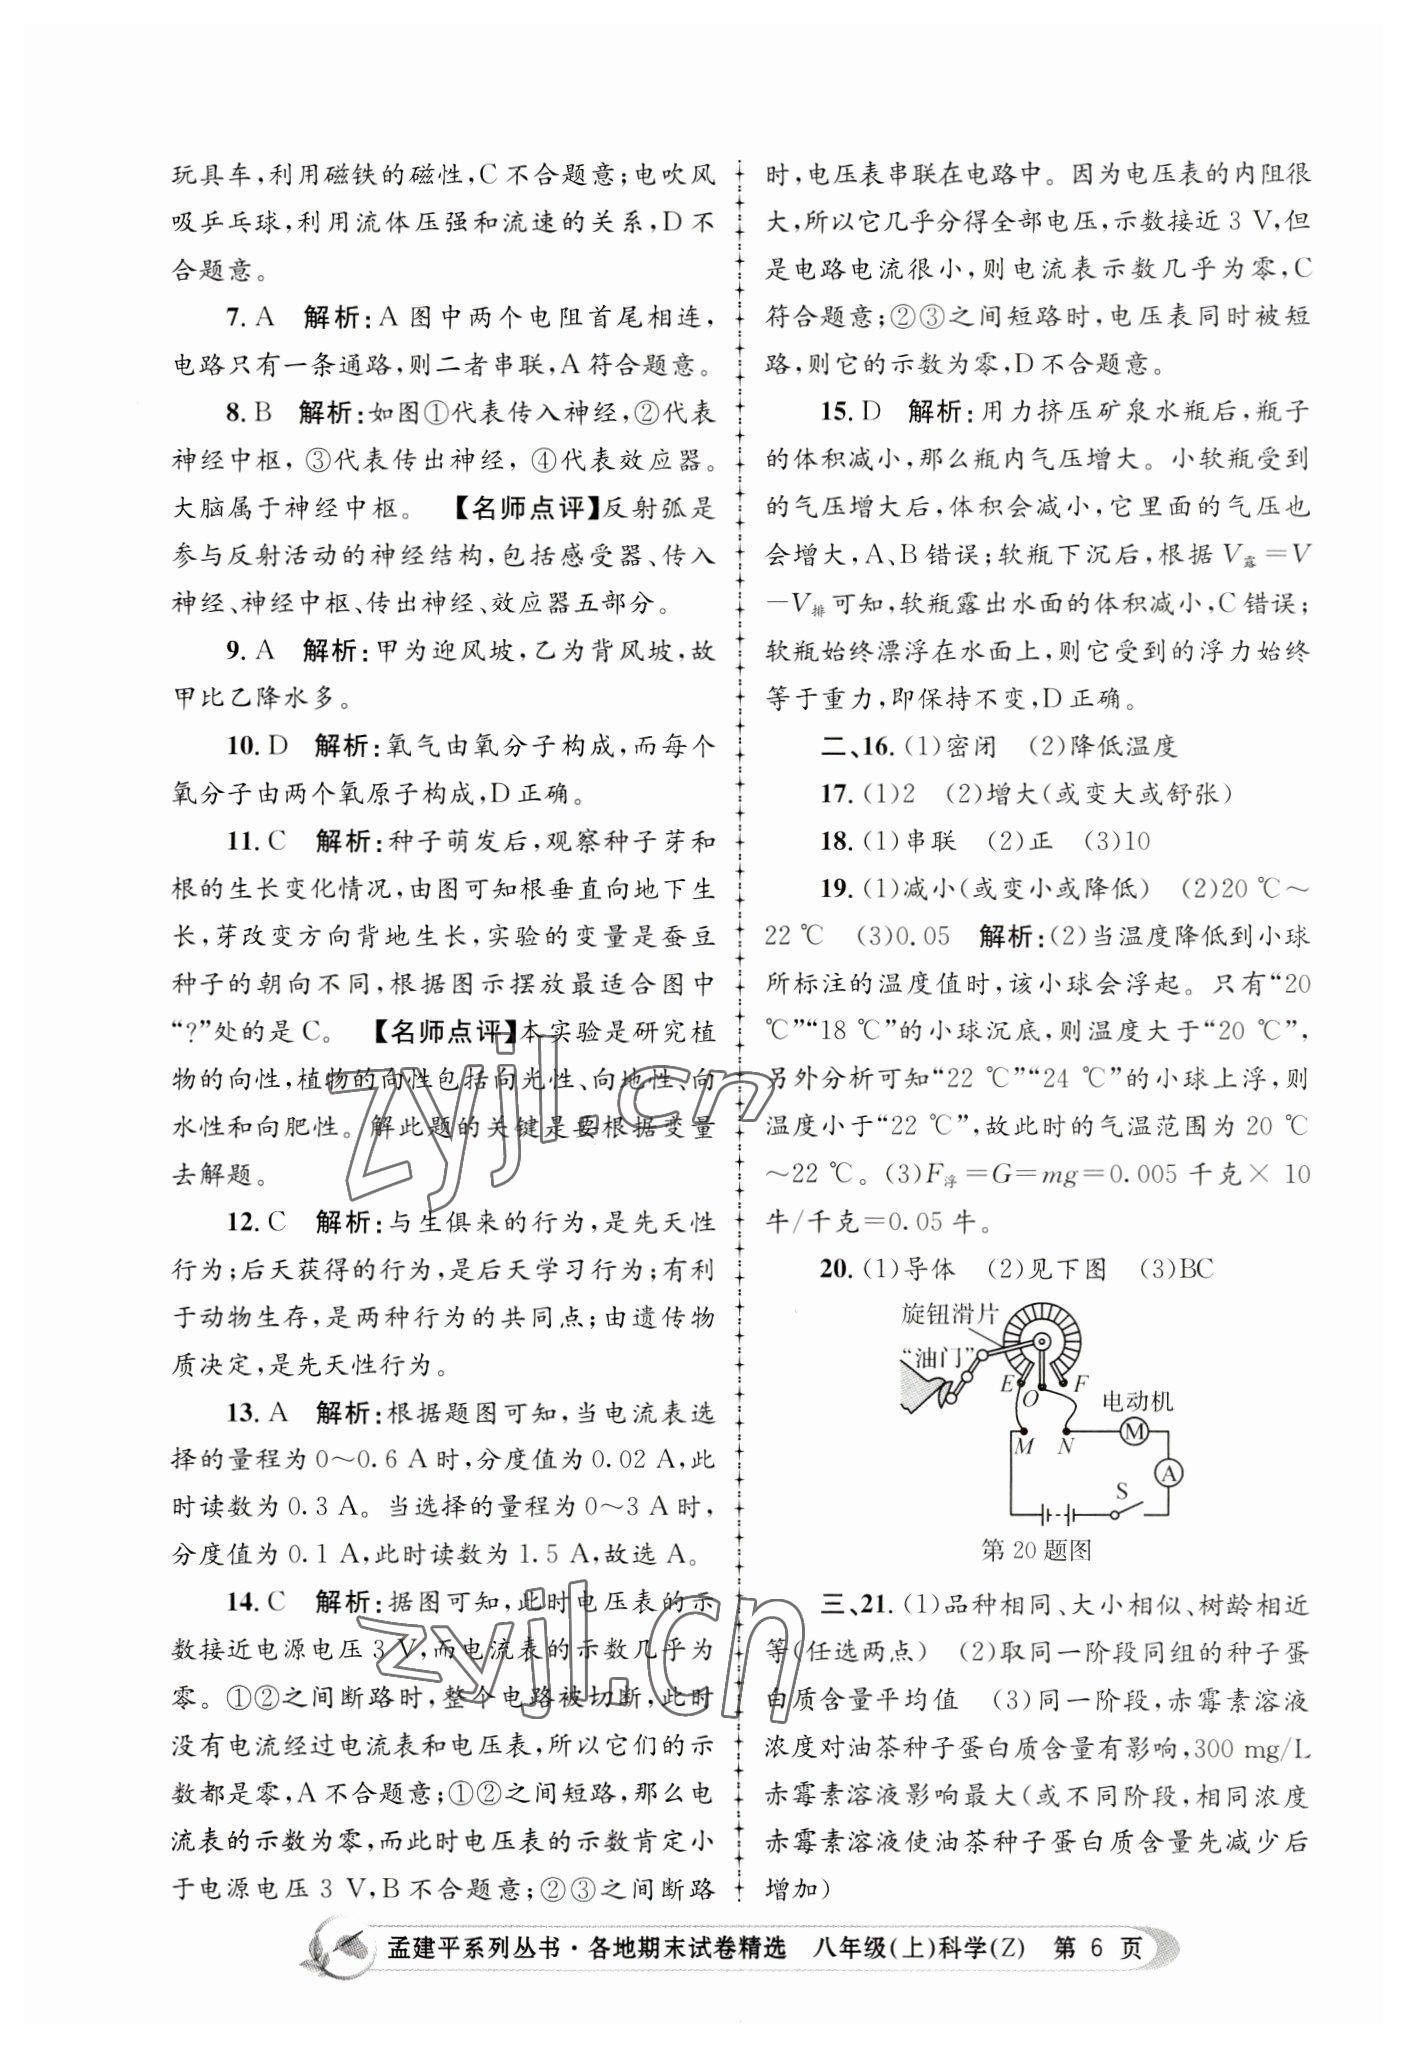 玩具车,利用磁铁的磁性,C不合题意;电吹风
吸乒乓球,利用流体压强和流速的关系,D不
合题意。
7. A 解析:A图中两个电阻首尾相连,
电路只有一条通路,则二者串联,A符合题意。
8. B 解析:如图①代表传入神经,②代表
神经中枢,③代表传出神经,④代表效应器。
大脑属于神经中枢。 【名师点评】反射弧是
参与反射活动的神经结构,包括感受器、传入
神经、神经中枢、传出神经、效应器五部分。
9. A 解析:甲为迎风坡,乙为背风坡,故
甲比乙降水多。
10. D 解析:氧气由氧分子构成,而每个
氧分子由两个氧原子构成,D正确。
11. C 解析:种子萌发后,观察种子芽和
根的生长变化情况,由图可知根垂直向地下生
长,芽改变方向背地生长,实验的变量是蚕豆
种子的朝向不同,根据图示摆放最适合图中
“?”处的是C。 【名师点评】本实验是研究植
物的向性,植物的向性包括向光性、向地性、向
水性和向肥性。解此题的关键是要根据变量
去解题。
12. C 解析:与生俱来的行为,是先天性
行为;后天获得的行为,是后天学习行为;有利
于动物生存,是两种行为的共同点;由遗传物
质决定,是先天性行为。
13. A 解析:根据题图可知,当电流表选
择的量程为0~0.6 A时,分度值为0.02 A,此
时读数为0.3 A。当选择的量程为0~3 A时,
分度值为0.1 A,此时读数为1.5 A,故选A。
14. C 解析:据图可知,此时电压表的示
数接近电源电压3 V,而电流表的示数几乎为
零。①②之间断路时,整个电路被切断,此时
没有电流经过电流表和电压表,所以它们的示
数都是零,A不合题意;①②之间短路,那么电
流表的示数为零,而此时电压表的示数肯定小
于电源电压3 V,B不合题意;②③之间断路
时,电压表串联在电路中。因为电压表的内阻很
大,所以它几乎分得全部电压,示数接近3 V,但
是电路电流很小,则电流表示数几乎为零,C
符合题意;②③之间短路时,电压表同时被短
路,则它的示数为零,D不合题意。
15. D 解析:用力挤压矿泉水瓶后,瓶子
的体积减小,那么瓶内气压增大。小软瓶受到
的气压增大后,体积会减小,它里面的气压也
会增大,A、B错误;软瓶下沉后,根据V露=V
-V排可知,软瓶露出水面的体积减小,C错误;
软瓶始终漂浮在水面上,则它受到的浮力始终
等于重力,即保持不变,D正确。
二、16. (1)密闭 (2)降低温度
17. (1)2 (2)增大(或变大或舒张)
18. (1)串联 (2)正 (3)10
19. (1)减小(或变小或降低) (2)20 ℃~
22 ℃ (3)0.05 解析:(2)当温度降低到小球
所标注的温度值时,该小球会浮起。只有“20
℃”“18 ℃”的小球沉底,则温度大于“20 ℃”,
另外分析可知“22 ℃”“24 ℃”的小球上浮,则
温度小于“22 ℃”,故此时的气温范围为20 ℃
~22 ℃。(3)F浮=G=mg=0.005千克×10
牛/千克=0.05牛。
20. (1)导体 (2)见下图 (3)BC
旋钮滑片
“油门”
E O F
电动机
M N M
A
S
第20题图
三、21. (1)品种相同、大小相似、树龄相近
等(任选两点) (2)取同一阶段同组的种子蛋
白质含量平均值 (3)同一阶段,赤霉素溶液
浓度对油茶种子蛋白质含量有影响,300 mg/L
赤霉素溶液影响最大(或不同阶段,相同浓度
赤霉素溶液使油茶种子蛋白质含量先减少后
增加)
孟建平系列丛书·各地期末试卷精选 八年级(上)科学(Z) 第6页
zyjl.cn
zyjl.cn